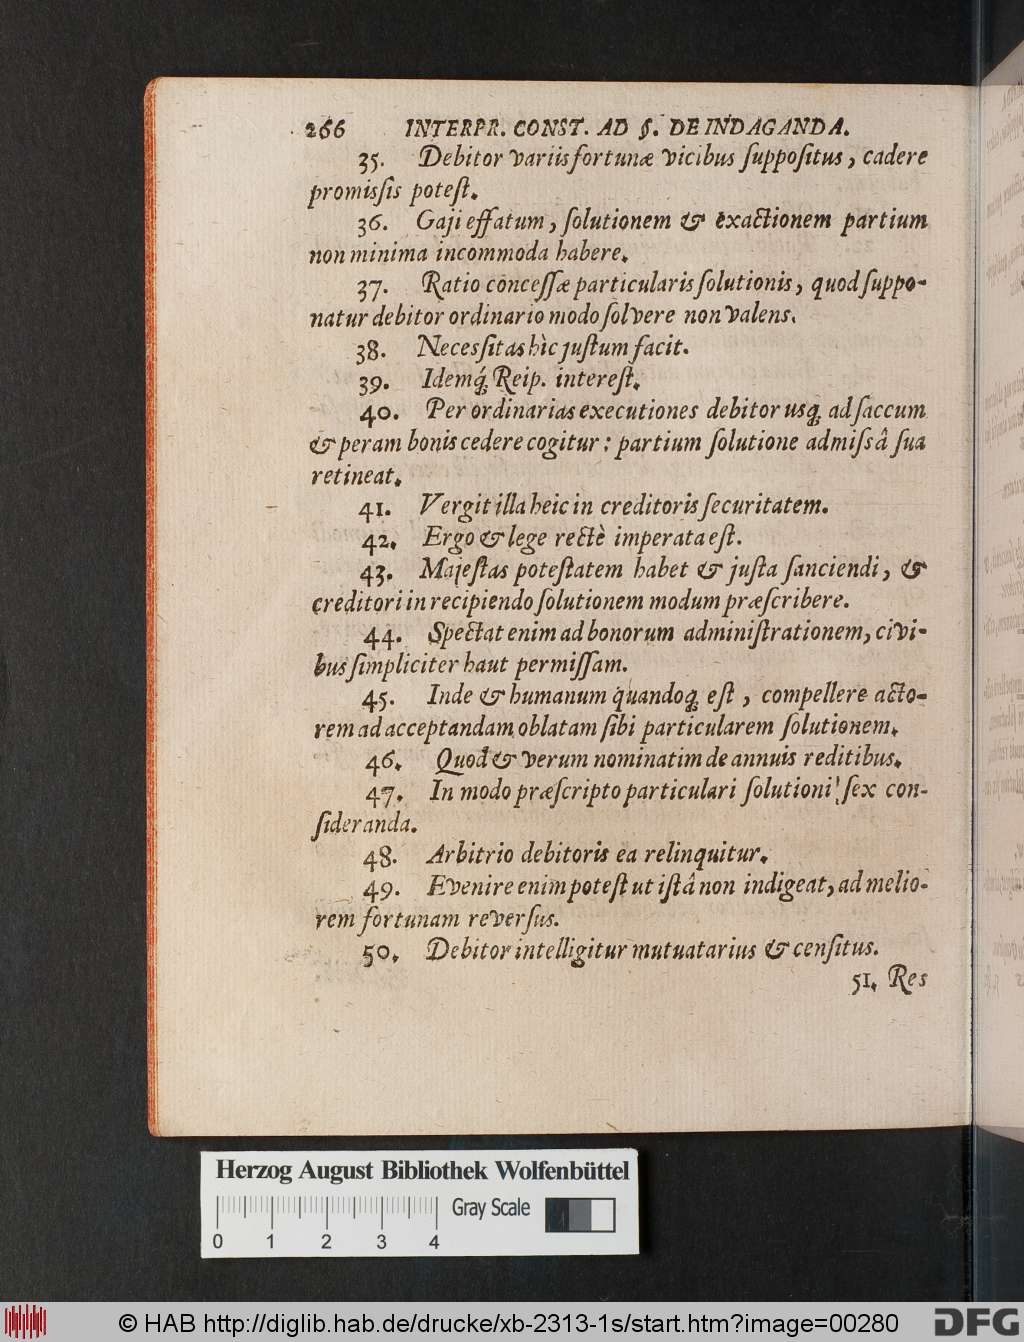 266 INTERPR. CONST. AD §. DE INDAGANDA.
35. Debitor variis fortunæ vicibus suppositus, cadere
promissis potest.
36. Gaji effatum, solutionem & exactionem partium
non minima incommoda habere.
37. Ratio concessæ particularis solutionis, quod suppo-
natur debitor ordinario modo solvere non valens.
38. Necessitas hìc justum facit.
39. Idemq́; Reip. interest.
40. Per ordinarias executiones debitor usq; ad saccum
& peram bonis cedere cogitur: partium solutione admissâ sua
retineat.
41. Vergit illa heic in creditoris securitatem.
42. Ergo & lege rectè imperata est.
43. Majestas potestatem habet & justa sanciendi, &
creditori in recipiendo solutionem modum præscribere.
44. Spectat enim ad bonorum administrationem, civi-
bus simpliciter haut permissam.
45. Inde & humanum quandoq; est, compellere acto-
rem ad acceptandam oblatam sibi particularem solutionem.
46. Quod & verum nominatim de annuis reditibus.
47. In modo præscripto particulari solutioni sex con-
sideranda.
48. Arbitrio debitoris ea relinquitur.
49. Evenire enim potest ut istâ non indigeat, ad melio-
rem fortunam reversus.
50. Debitor intelligitur mutuatarius & censitus.
51. Res
Herzog August Bibliothek Wolfenbüttel
Gray Scale
0 1 2 3 4
© HAB http://diglib.hab.de/drucke/xb-2313-1s/start.htm?image=00280
DFG